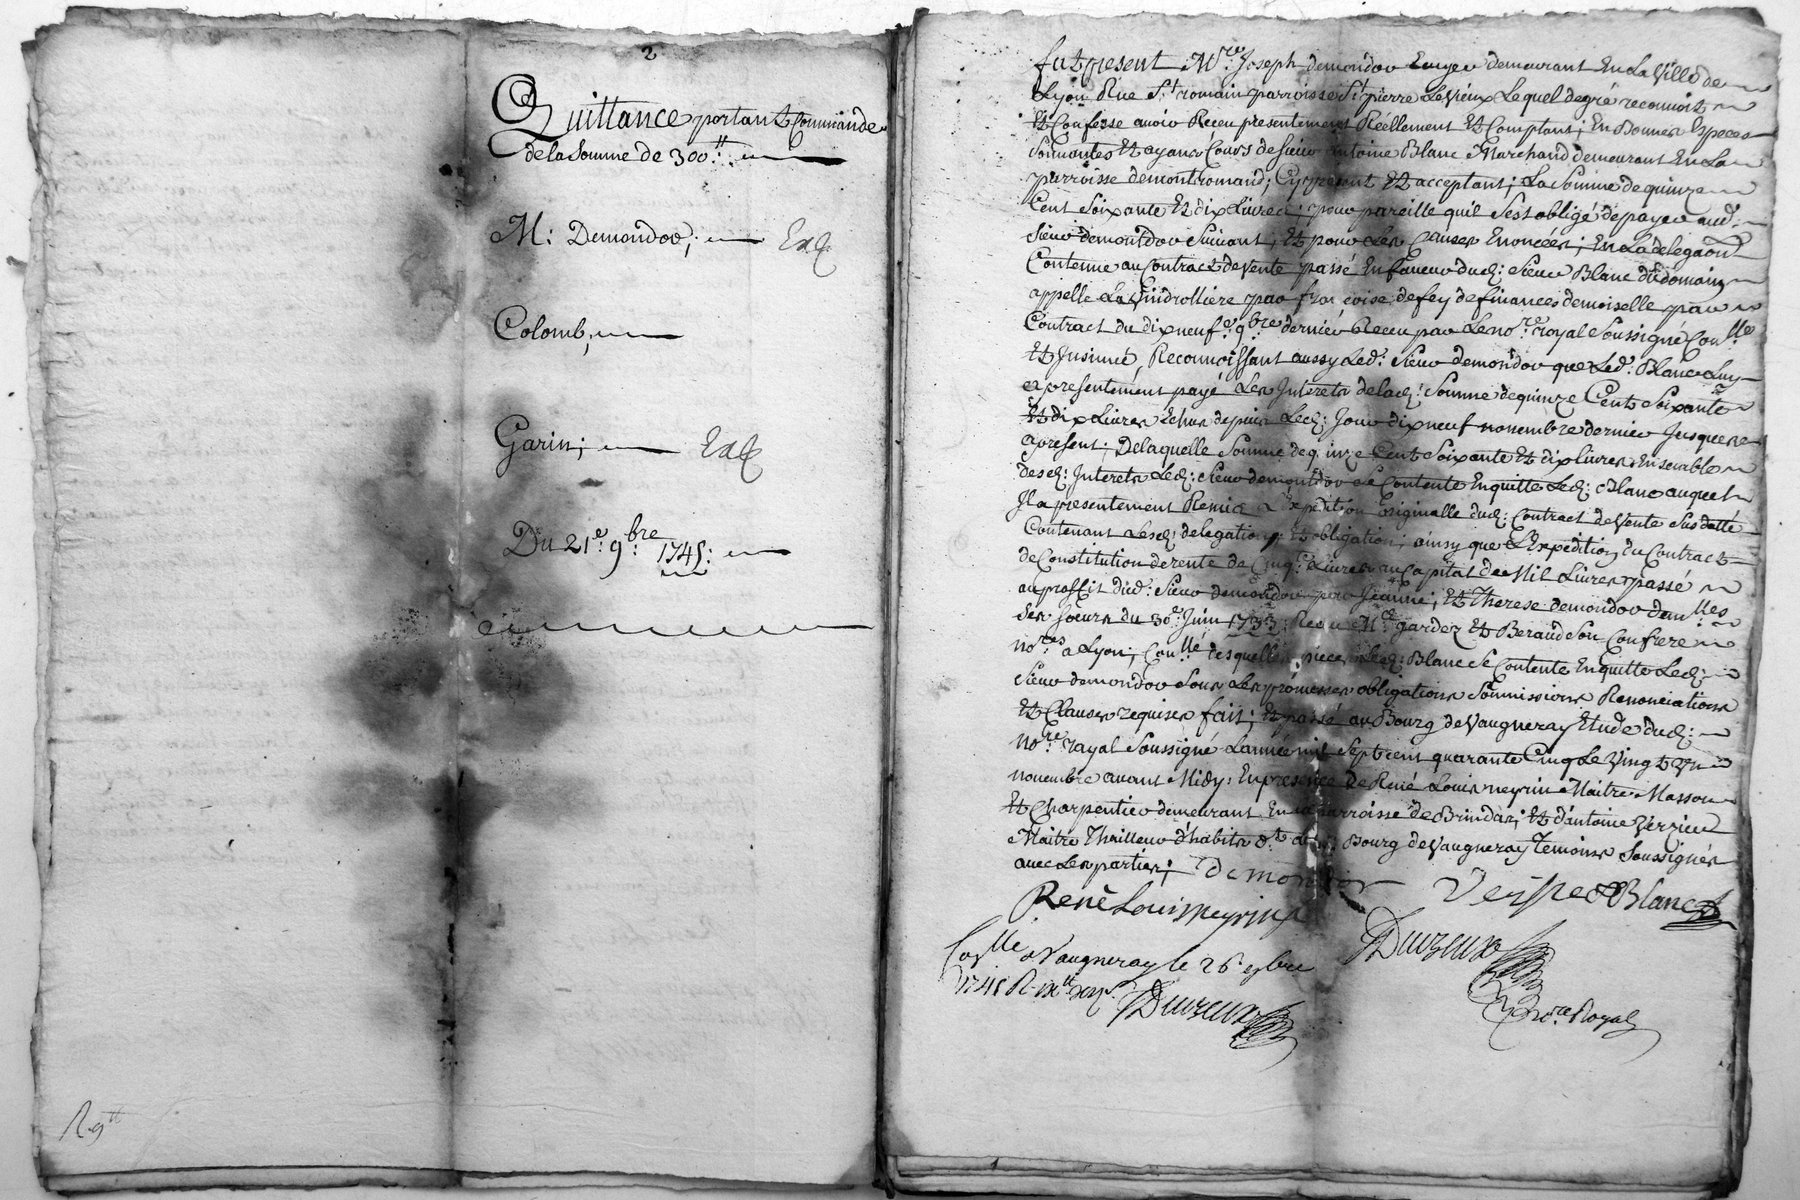 2
Quittance portant Commande
de la Somme de 300ᵗᵗ:
M: Demondor; Exᵉ
Colomb;
Garin; Exᵉ
Du 21ᵉ: 9ᵇʳᵉ: 1745:
R. 9ᵗᵗ
fut present Mʳᵉ: Joseph demondor Ecuyer demeurant En La Ville de
Lyon Rue Sᵗ romain parroisse Sᵗ pierre Le vieux Lequel de gré reconnoit
Et Confesse avoir Receu presentement Reellement Et Comptant; En Bonnes Especes
Sonnantes Et ayance Cours de Sieur antoine Blanc Marchand demeurant En La
parroisse de montromand; Cy present Et acceptant; La Somme de quinze
Cent Soixante Et dix Livres; pour pareille quil Sest obligé de payer aud:
Sieur demontdor Suivant, Et pour Les Causes Enoncées; En La delegaon
Contenue au Contract de Vente passé En faveur dud: Sieur Blanc du domaine
appelle La Guidolliere par françoise de fey de finances demoiselle par
Contract du dix neufᵉ: 9ᵇʳᵉ dernier Receu par Le noʳᵉ: royal Soussigné Conˡˡᵉ
Et Insinué, Reconnoissant aussy Led: Sieur demondor que Led: Blanc Luy
a presentement payé Les Interets de lad: Somme de quinze Cent Soixante
Et dix Livres Echus depuis Led: Jour dix neuf novembre dernier Jusques
a present; De laquelle Somme de quinze Cent Soixante Et dix livres Ensemble
desd: Interets Led: Sieur demontdor Se Contente En quitte Led: Blanc auquel
Il a presentement Remis Expedition originalle dud: Contract de Vente Susdatté
Contenant Lesd: delegation Et obligation; ainsy que L'Expedition du Contract
de Constitution de rente de Cinqᵗᵉ Livres au Capital de Mil Livres passé
au proffit dud: Sieur demondor par Jeanne; Et Therese demondor demˡˡᵉˢ
Ses Soeurs du 30ᵉ: Juin 1733: Receu Mᵉ gardez Et Beraud Son Confrere
Noʳᵉˢ a Lyon; Conˡˡᵉ desquelles pieces Led: Blanc Se Contente En quitte Led:
Sieur demondor Sous Les promesses obligations Soumissions Renonciations
Et Clauses requises fait; Et passé au Bourg de Vaugneray Etude dud:
Noʳᵉ: royal Soussigné L'année mil Sept cent quarante Cinq Le Vingt Un
novembre avant Midy: En presence de René Louis neyrin Maitre Masson
Et Charpentier demeurant En La parroisse de Brindas; Et d'antoine Verzieu
Maitre Thailleur d'habits dᵗ: au Bourg de Vaugneray Temoins Soussignés
avec Les parties; Demondor
René Louis neyrin Blanc
Duvreux
noʳᵉ Royal
Conˡˡᵉ a Vaugneray le 26 9bre
1745 R.
Duvreux